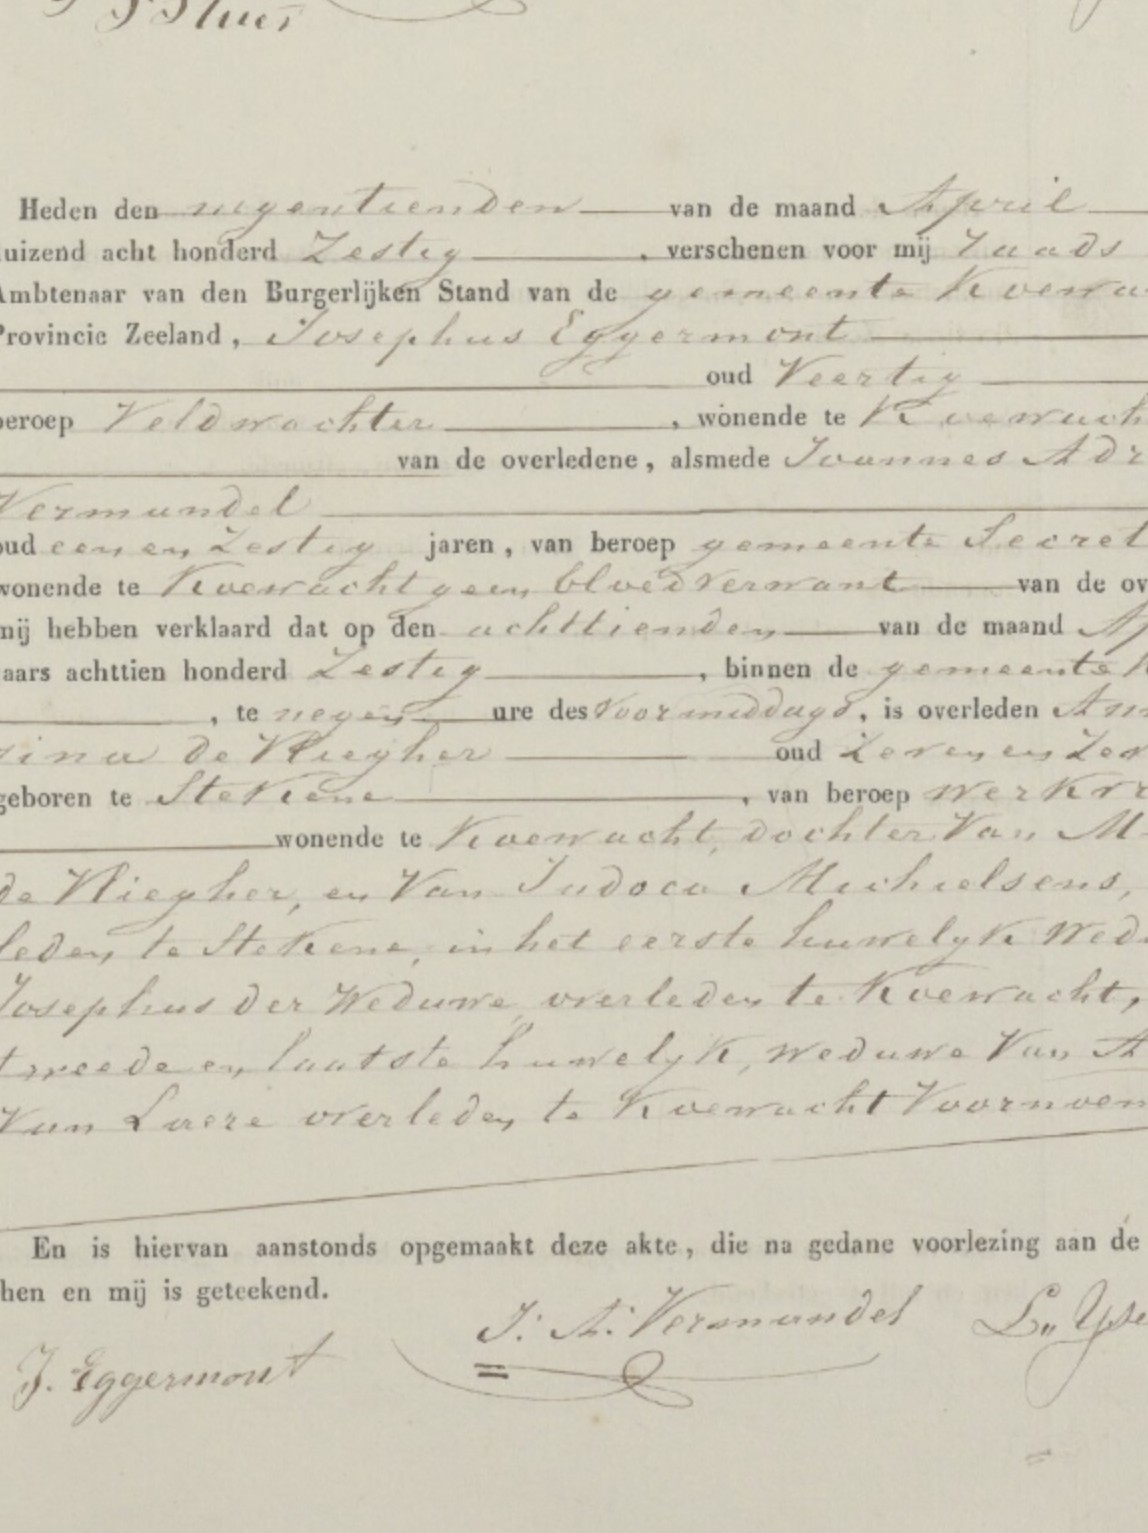 Heden den negentienden van de maand April
uizend acht honderd Zestig , verschenen voor mij
Ambtenaar van den Burgerlijken Stand van de gemeente Koewa
Provincie Zeeland, Josephus Eggermont
oud Veertig
beroep Veldwachter , wonende te Koewach
van de overledene, alsmede Joannes Adr
Vermandel
oud een en Zestig jaren, van beroep gemeente Secret
wonende te Koewacht geen bloedverwant van de ov
mij hebben verklaard dat op den achttienden van de maand Ap
aars achttien honderd Zestig , binnen de gemeente K
, te negen ure des voormiddags, is overleden An
sina de Vliegher oud Zeven en Zev
geboren te Stekene , van beroep werkvr
wonende te Koewacht, dochter Van M
de Vliegher, en Van Judoca Michielsens,
leden te Stekene, in het eerste huwelyk Wedu
Josephus der Weduwe overleden te Koewacht,
tweede en laatste huwelyk, weduwe Van A
Van Laere overleden te Koewacht Voornoem
En is hiervan aanstonds opgemaakt deze akte, die na gedane voorlezing aan de
hen en mij is geteekend.
J. A. Vermandel
J. Eggermont